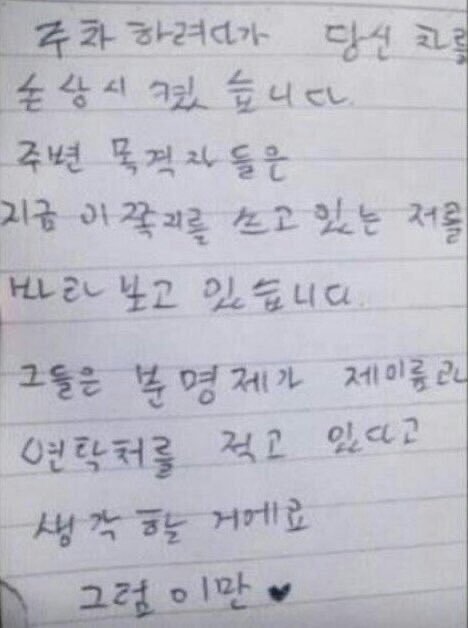 주차 하려다가 당신 차를
손상시켰습니다.
주변 목격자들은
지금 이 쪽지를 쓰고 있는 저를
바라 보고 있습니다.
그들은 분명 제가 제 이름과
연락처를 적고 있다고
생각할 거에요
그럼 이만 ♥